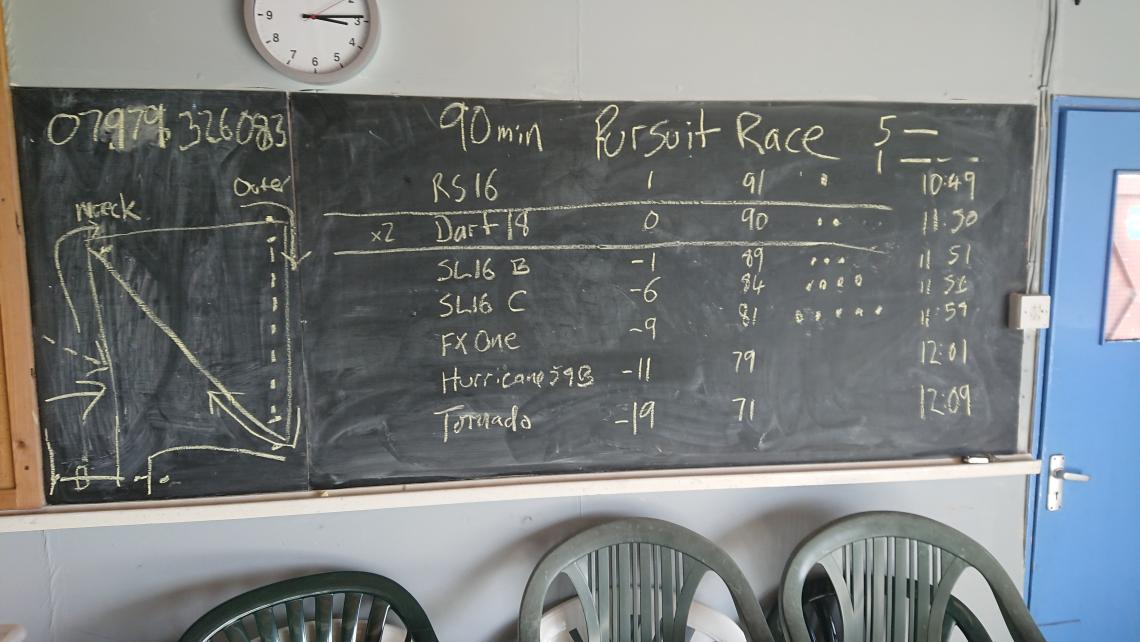 9 8 7 6 5 4 3 2
07979 326083
90min Pursuit Race 5 —
1 — - -
RS16 1 91 • 10:49
x2 Dart 18 0 90 •• 11:50
SL16 B -1 89 ••• 11 51
SL16 C -6 84 •••• 11 56
FX One -9 81 ••••• 11 59
Hurricane 59B -11 79 12:01
Tornado -19 71 12:09
Outer